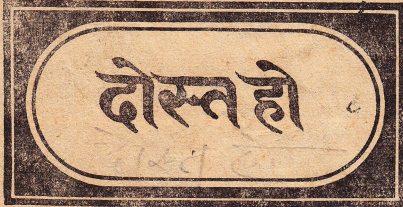 दोस्त हो